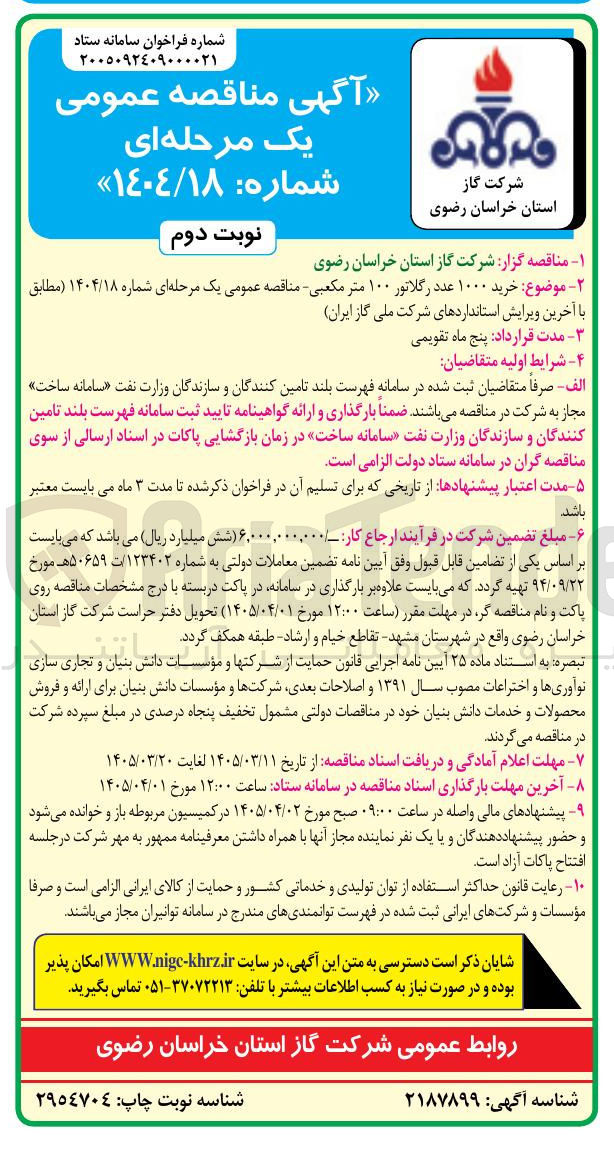 شماره فراخوان سامانه ستاد
۲۰۰۵۰۹۲۴۰۹۰۰۰۰۲۱
«آگهی مناقصه عمومی
یک مرحله‌ای
شماره: ۱۴۰۴/۱۸»
شرکت گاز
استان خراسان رضوی
نوبت دوم
۱- مناقصه گزار: شرکت گاز استان خراسان رضوی
۲- موضوع: خرید ۱۰۰۰ عدد رگلاتور ۱۰۰ متر مکعبی- مناقصه عمومی یک مرحله‌ای شماره ۱۴۰۴/۱۸ (مطابق
با آخرین ویرایش استانداردهای شرکت ملی گاز ایران)
۳- مدت قرارداد: پنج ماه تقویمی
۴- شرایط اولیه متقاضیان:
الف- صرفاً متقاضیان ثبت شده در سامانه فهرست بلند تامین کنندگان و سازندگان وزارت نفت «سامانه ساخت»
مجاز به شرکت در مناقصه می‌باشند. ضمناً بارگذاری و ارائه گواهینامه تایید ثبت سامانه فهرست بلند تامین
کنندگان و سازندگان وزارت نفت «سامانه ساخت» در زمان بازگشایی پاکات در اسناد ارسالی از سوی
مناقصه گران در سامانه ستاد دولت الزامی است.
۵-مدت اعتبار پیشنهادها: از تاریخی که برای تسلیم آن در فراخوان ذکرشده تا مدت ۳ ماه می بایست معتبر
باشد.
۶- مبلغ تضمین شرکت در فرآیند ارجاع کار: ــ/۶,۰۰۰,۰۰۰,۰۰۰ (شش میلیارد ریال) می باشد که می‌بایست
بر اساس یکی از تضامین قابل قبول وفق آیین نامه تضمین معاملات دولتی به شماره ۱۲۳۴۰۲/ت ۵۰۶۵۹هـ مورخ
۹۴/۰۹/۲۲ تهیه گردد. که می‌بایست علاوه‌بر بارگذاری در سامانه، در پاکت دربسته با درج مشخصات مناقصه روی
پاکت و نام مناقصه گر، در مهلت مقرر (ساعت ۱۲:۰۰ مورخ ۱۴۰۵/۰۴/۰۱) تحویل دفتر حراست شرکت گاز استان
خراسان رضوی واقع در شهرستان مشهد- تقاطع خیام و ارشاد- طبقه همکف گردد.
تبصره: به استناد ماده ۲۵ آیین نامه اجرایی قانون حمایت از شرکتها و مؤسسات دانش بنیان و تجاری سازی
نوآوری‌ها و اختراعات مصوب سال ۱۳۹۱ و اصلاحات بعدی، شرکت‌ها و مؤسسات دانش بنیان برای ارائه و فروش
محصولات و خدمات دانش بنیان خود در مناقصات دولتی مشمول تخفیف پنجاه درصدی در مبلغ سپرده شرکت
در مناقصه می‌گردند.
۷- مهلت اعلام آمادگی و دریافت اسناد مناقصه: از تاریخ ۱۴۰۵/۰۳/۱۱ لغایت ۱۴۰۵/۰۳/۲۰
۸- آخرین مهلت بارگذاری اسناد مناقصه در سامانه ستاد: ساعت ۱۲:۰۰ مورخ ۱۴۰۵/۰۴/۰۱
۹- پیشنهادهای مالی واصله در ساعت ۰۹:۰۰ صبح مورخ ۱۴۰۵/۰۴/۰۲ در کمیسیون مربوطه باز و خوانده می‌شود
و حضور پیشنهاددهندگان و یا یک نفر نماینده مجاز آنها با همراه داشتن معرفینامه ممهور به مهر شرکت درجلسه
افتتاح پاکات آزاد است.
۱۰- رعایت قانون حداکثر استفاده از توان تولیدی و خدماتی کشور و حمایت از کالای ایرانی الزامی است و صرفا
مؤسسات و شرکت‌های ایرانی ثبت شده در فهرست توانمندی‌های مندرج در سامانه توانیران مجاز می‌باشند.
شایان ذکر است دسترسی به متن این آگهی، در سایت WWW.nigc-khrz.ir امکان پذیر
بوده و در صورت نیاز به کسب اطلاعات بیشتر با تلفن: ۳۷۰۷۲۲۱۳-۰۵۱ تماس بگیرید.
روابط عمومی شرکت گاز استان خراسان رضوی
شناسه آگهی: ۲۱۸۷۸۹۹
شناسه نوبت چاپ: ۲۹۵۴۷۰۴